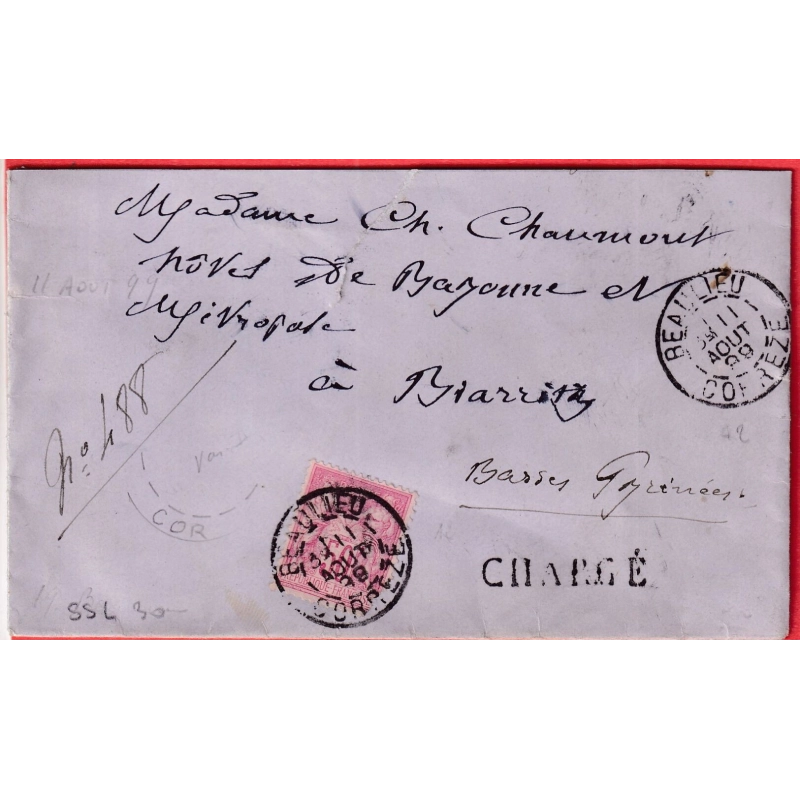 Madame Ch. Chaumont
hôtel De Bayonne et
Métropole
à Biarritz
Basses Pyrénées
11 AOUT 99
No 488
BEAULIEU
11
AOUT
99
CORREZE
42
COR
BEAULIEU
11
AOUT
99
CORREZE
CHARGÉ
SSL 30